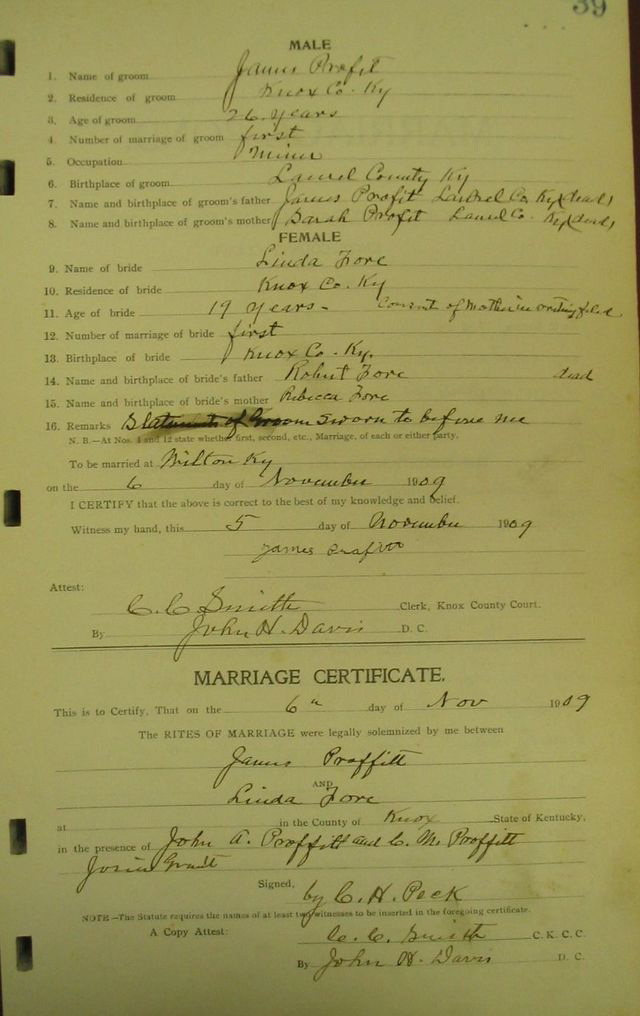 39
MALE
1. Name of groom James Profit
2. Residence of groom Knox Co. Ky
3. Age of groom 26 years
4. Number of marriage of groom first
5. Occupation Miner
6. Birthplace of groom Laurel County Ky
7. Name and birthplace of groom's father James Profit Laurel Co. Ky (dead)
8. Name and birthplace of groom's mother Sarah Profit Laurel Co. Ky (dead)
FEMALE
9. Name of bride Linda Fore
10. Residence of bride Knox Co. Ky
11. Age of bride 19 years - Consent of Mother in writing filed
12. Number of marriage of bride first
13. Birthplace of bride Knox Co. Ky.
14. Name and birthplace of bride's father Robert Fore dead
15. Name and birthplace of bride's mother Rebecca Fore
16. Remarks Statements of Groom Sworn to before me
N. B.—At Nos. 4 and 12 state whether first, second, etc., Marriage, of each or either party.
To be married at Wilton Ky
on the 6 day of November 1909
I CERTIFY that the above is correct to the best of my knowledge and belief.
Witness my hand, this 5 day of November 1909
James
Attest:
C. C. Smith Clerk, Knox County Court.
By John H. Davis D. C.
MARRIAGE CERTIFICATE.
This is to Certify, That on the 6th day of Nov 1909
The RITES OF MARRIAGE were legally solemnized by me between
James Proffitt
AND
Linda Fore
at in the County of Knox State of Kentucky,
in the presence of John A. Proffitt and C. M. Proffitt
Signed, by C. H. Peck
NOTE—The Statute requires the names of at least two witnesses to be inserted in the foregoing certificate.
A Copy Attest: C. C. Smith C. K. C. C.
By John H. Davis D. C.